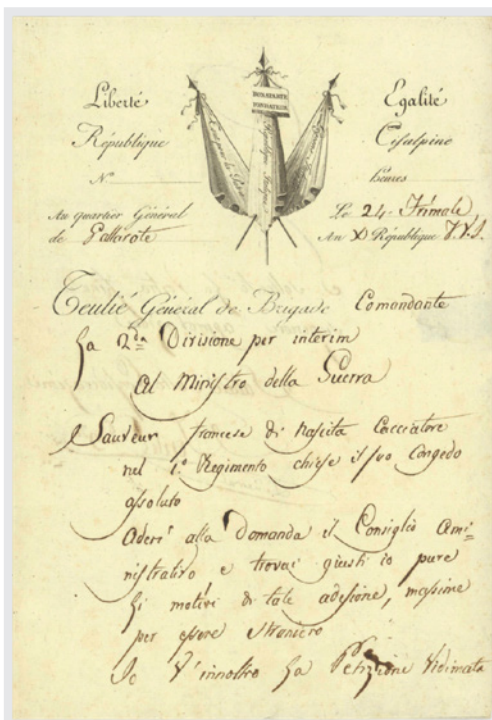 Liberté Egalité
République Cisalpine
N.º heures
Au quartier Général Le 24. Frimale
de Gallarate An X République V.V.S.
BONAPARTE
FONDATEUR
Teulié Général de Brigade Comandante
la 2.da Divisione per interim
Al Ministro della Guerra
Sauveur francese di nascita Cacciatore
nel 1.º Regimento chiese il suo Congedo
assoluto
Aderì alla Domanda il Consiglio Ami=
nistrativo e trovai giusti io pure
li motivi di tale adesione, massime
per essere straniero
Io V'innoltro la Petizione vidimata